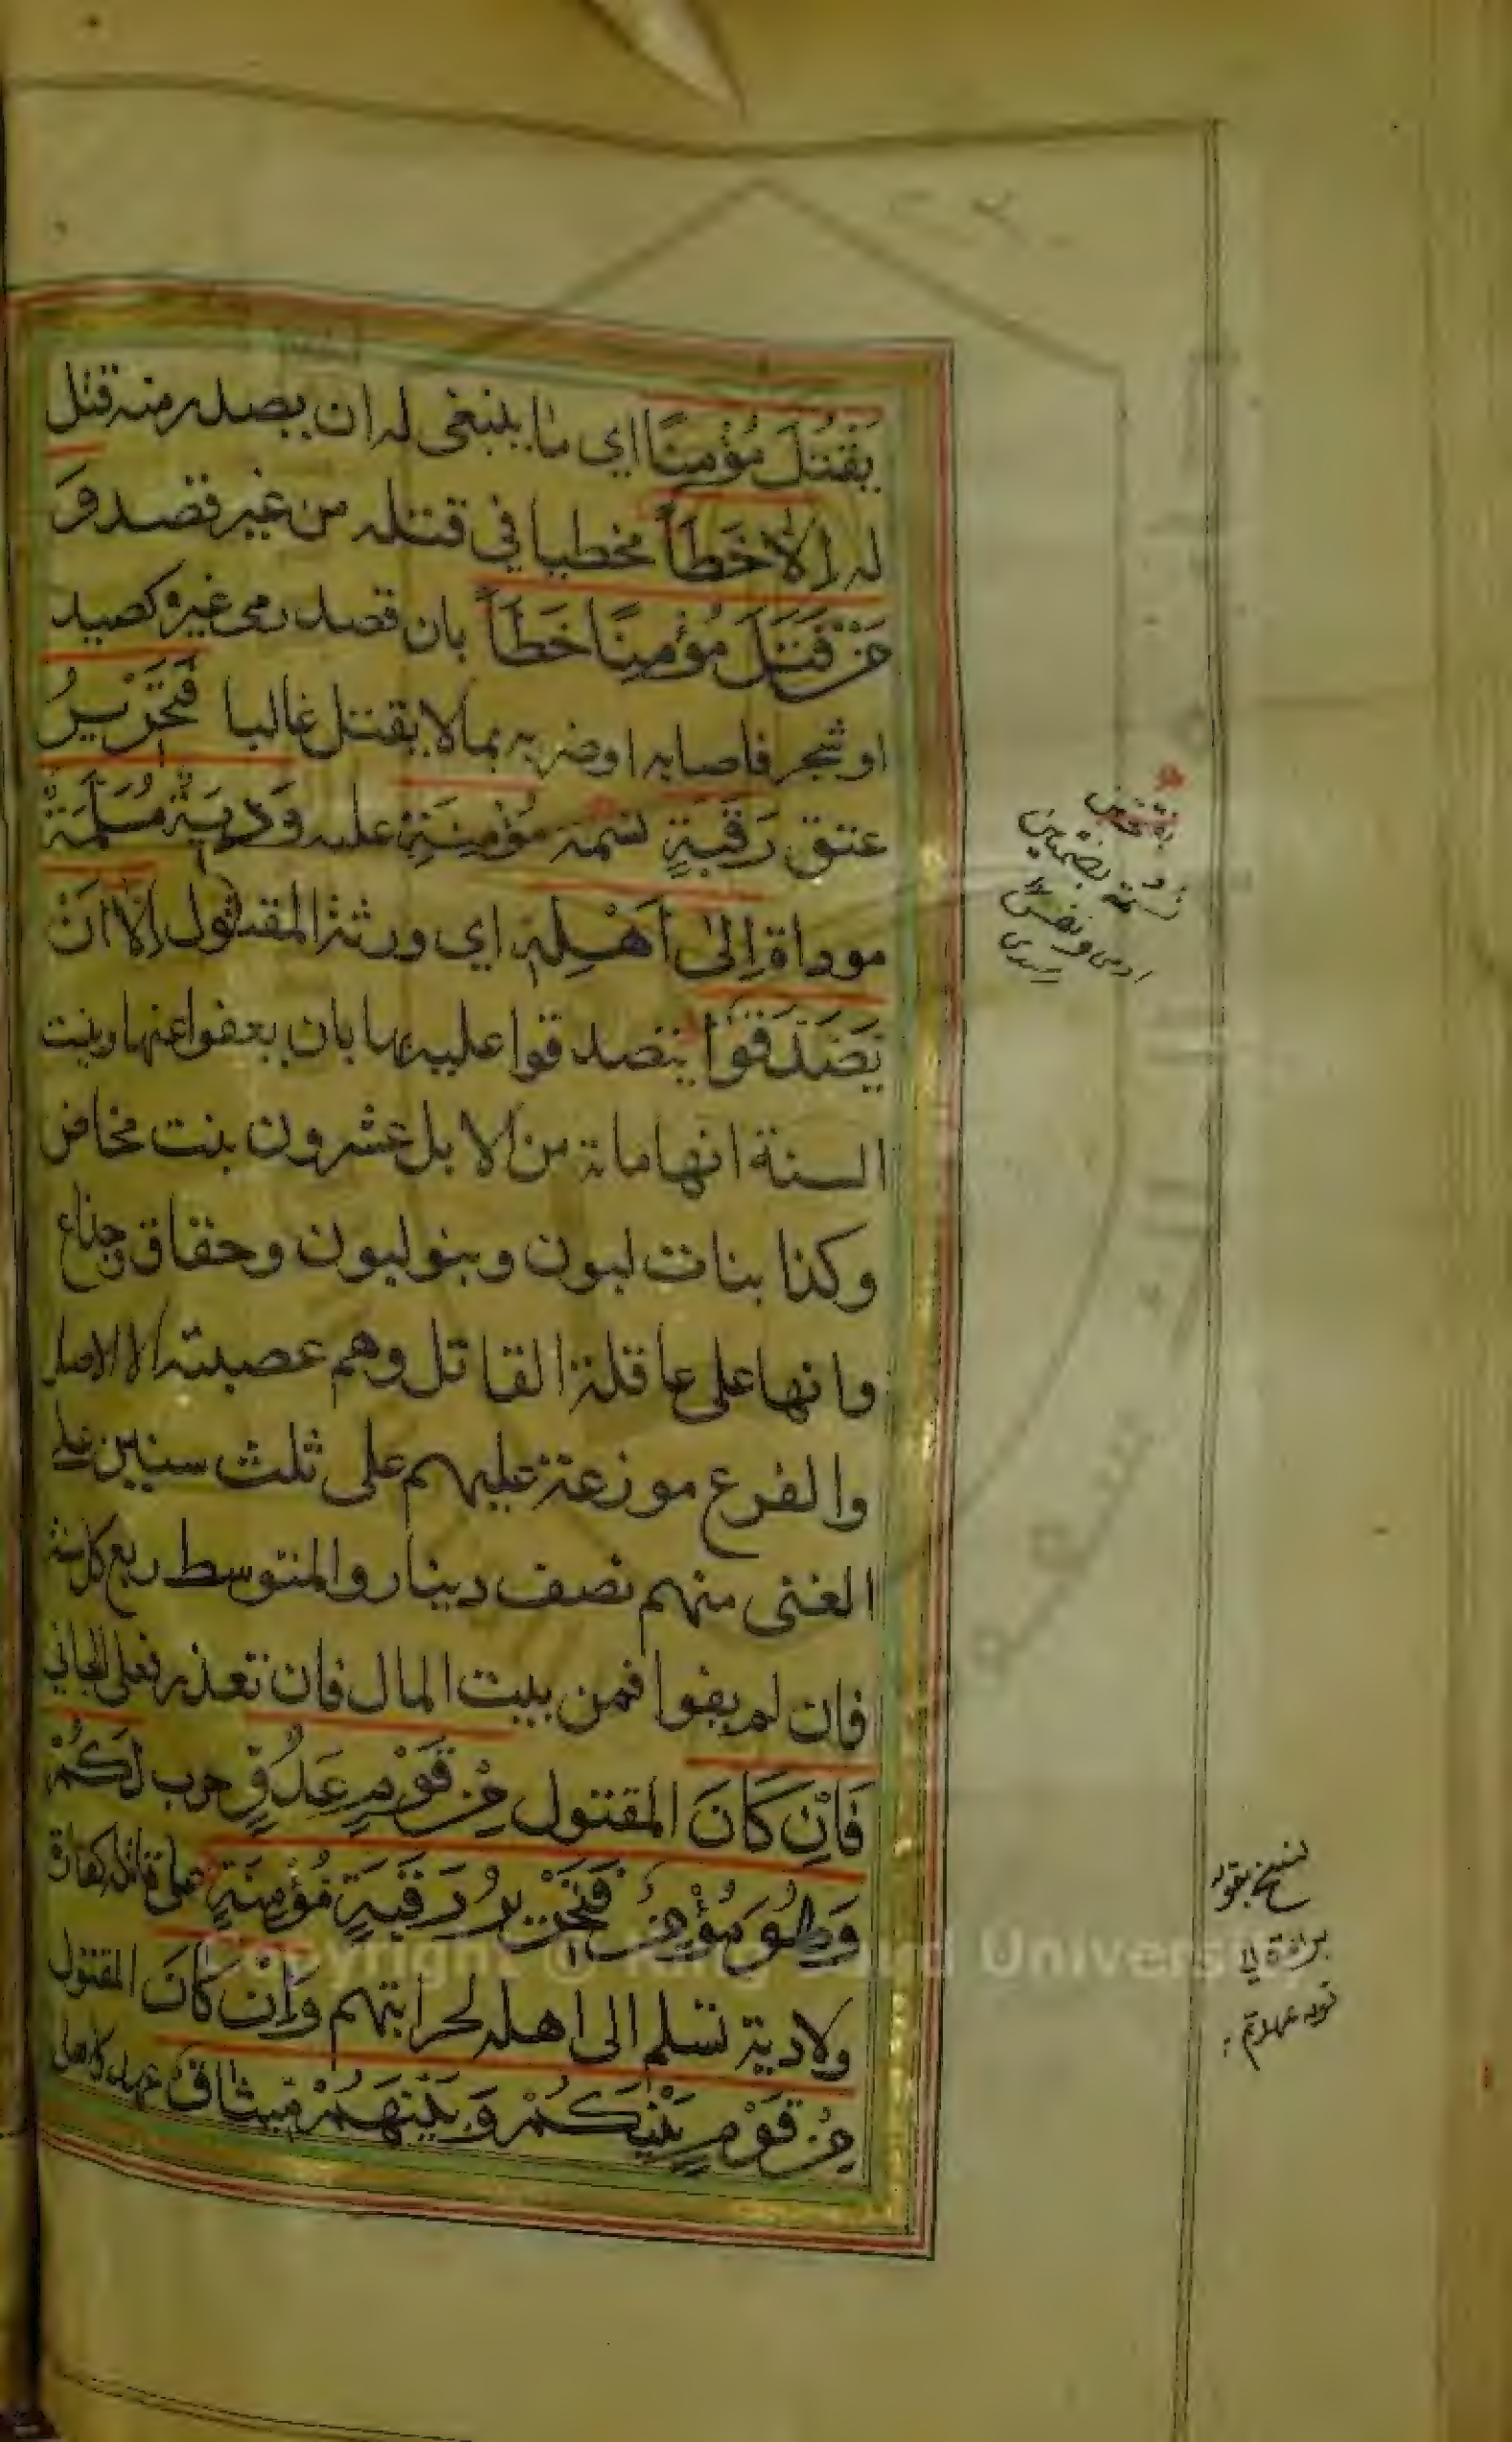 يَقْتُلَ مُؤْمِنًا اي ما ينبغي له ان يصدر منه قتل
له اِلَّا خَطَأً مخطيا في قتله من غير قصد وَ
مَنْ قَتَلَ مُؤْمِنًا خَطَأً بان قصد رمى غيره كصيد
او شجر فاصابه او ضربه بما لا يقتل غالبا فَتَحْرِيرُ
عتق رَقَبَةٍ نسمة مُؤْمِنَةٍ عليه وَدِيَةٌ مُسَلَّمَةٌ
موداة اِلىٰ اَهْلِهِ اي ورثة المقتول اِلَّا اَنْ
يَصَّدَّقُوا يتصدقوا عليه بها بان يعفوا عنها وبينت
السنة انها مائة من الابل عشرون بنت مخاض
وكذا بنات لبون وبنو لبون وحقاق وجذاع
وانها على عاقلة القاتل وهم عصبته الا الاصل
والفرع موزعة عليهم على ثلث سنين على
الغنى منهم نصف دينار والمتوسط ربع كل سنة
فان لم يفوا فمن بيت المال فان تعذر فعلى الجاني
فَاِنْ كَانَ المقتول مِنْ قَوْمٍ عَدُوٍّ حرب لَكُمْ
وَهُوَ مُؤْمِنٌ فَتَحْرِيرُ رَقَبَةٍ مُؤْمِنَةٍ على قاتله كفارة
ولا دية تسلم الى اهله لحرابتهم وَاِنْ كَانَ المقتول
مِنْ قَوْمٍ بَيْنَكُمْ وَبَيْنَهُمْ مِيثَاقٌ عهد كاهل
نسمة بفتحتين
ادمى ونفس
Copyright © King Saud University